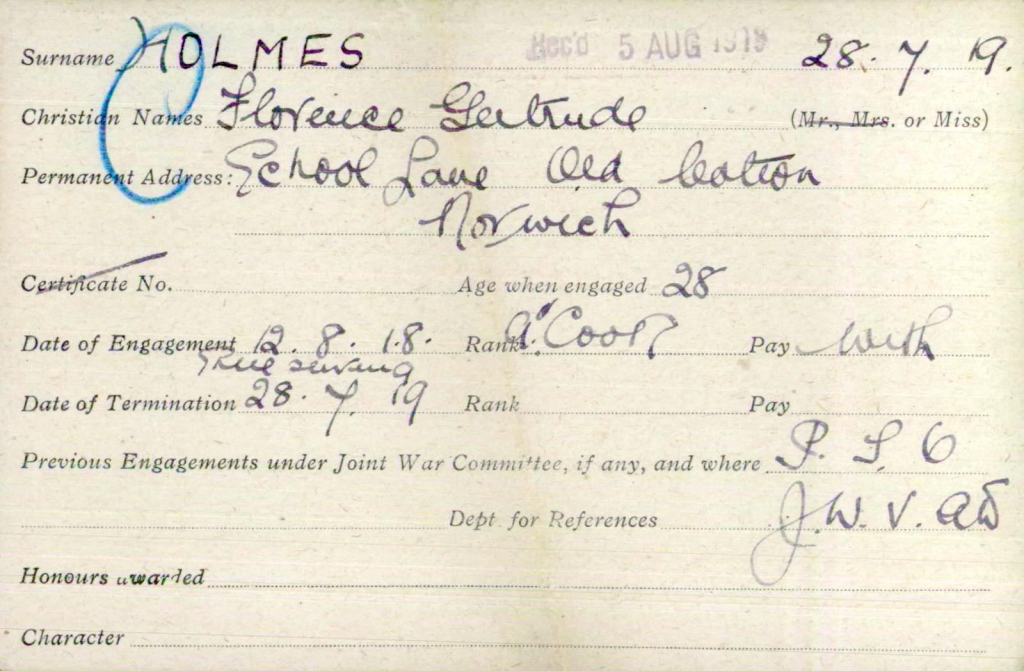 Surname HOLMES Rec'd 5 AUG 1919 28. 7. 19.
Christian Names Florence Gertrude (Mr., Mrs. or Miss)
Permanent Address: School Lane Old Catton
Norwich
Certificate No. Age when engaged 28
Date of Engagement 12. 8. 18. Rank A. Cook Pay with
still serving
Date of Termination 28. 7. 19 Rank Pay
Previous Engagements under Joint War Committee, if any, and where P. S. O
Dept. for References J. W. V. AD
Honours awarded
Character